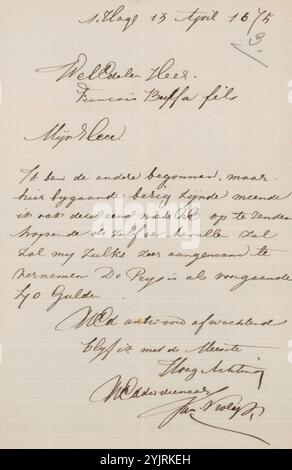 s. Hage 13 April 1875
WelEdelen Heer.
Francois Buffa fils
Mijn Heer
Ik ben de andere begonnen, maar
hier bygaande zynde meende
ik ook deze aan UEd op te zenden
hopende dezelfse bevalle zal
zal my zulks zeer aangenaam te
vernemen De Prys is als voorgaande
40 Gulden
UEd antwoord afwachtend
Blyf ik met de Meeste
Hoog Achting
UEd dw dienaar
alamy
Image ID: 2YJRKEH
www.alamy.com